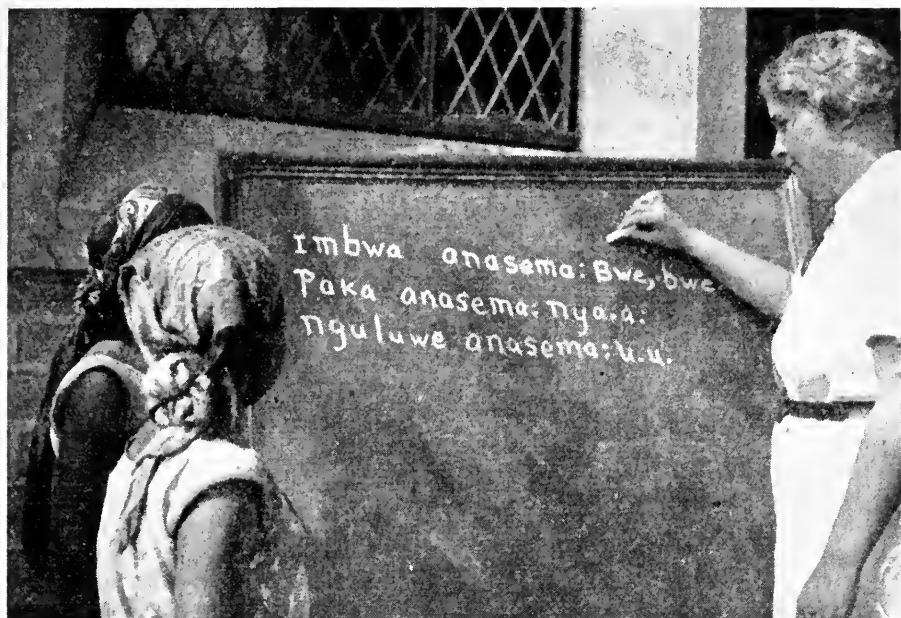 imbwa anasema: Bwe, bwe
Paka anasema: nya.a:
nguluwe anasema: u.u.